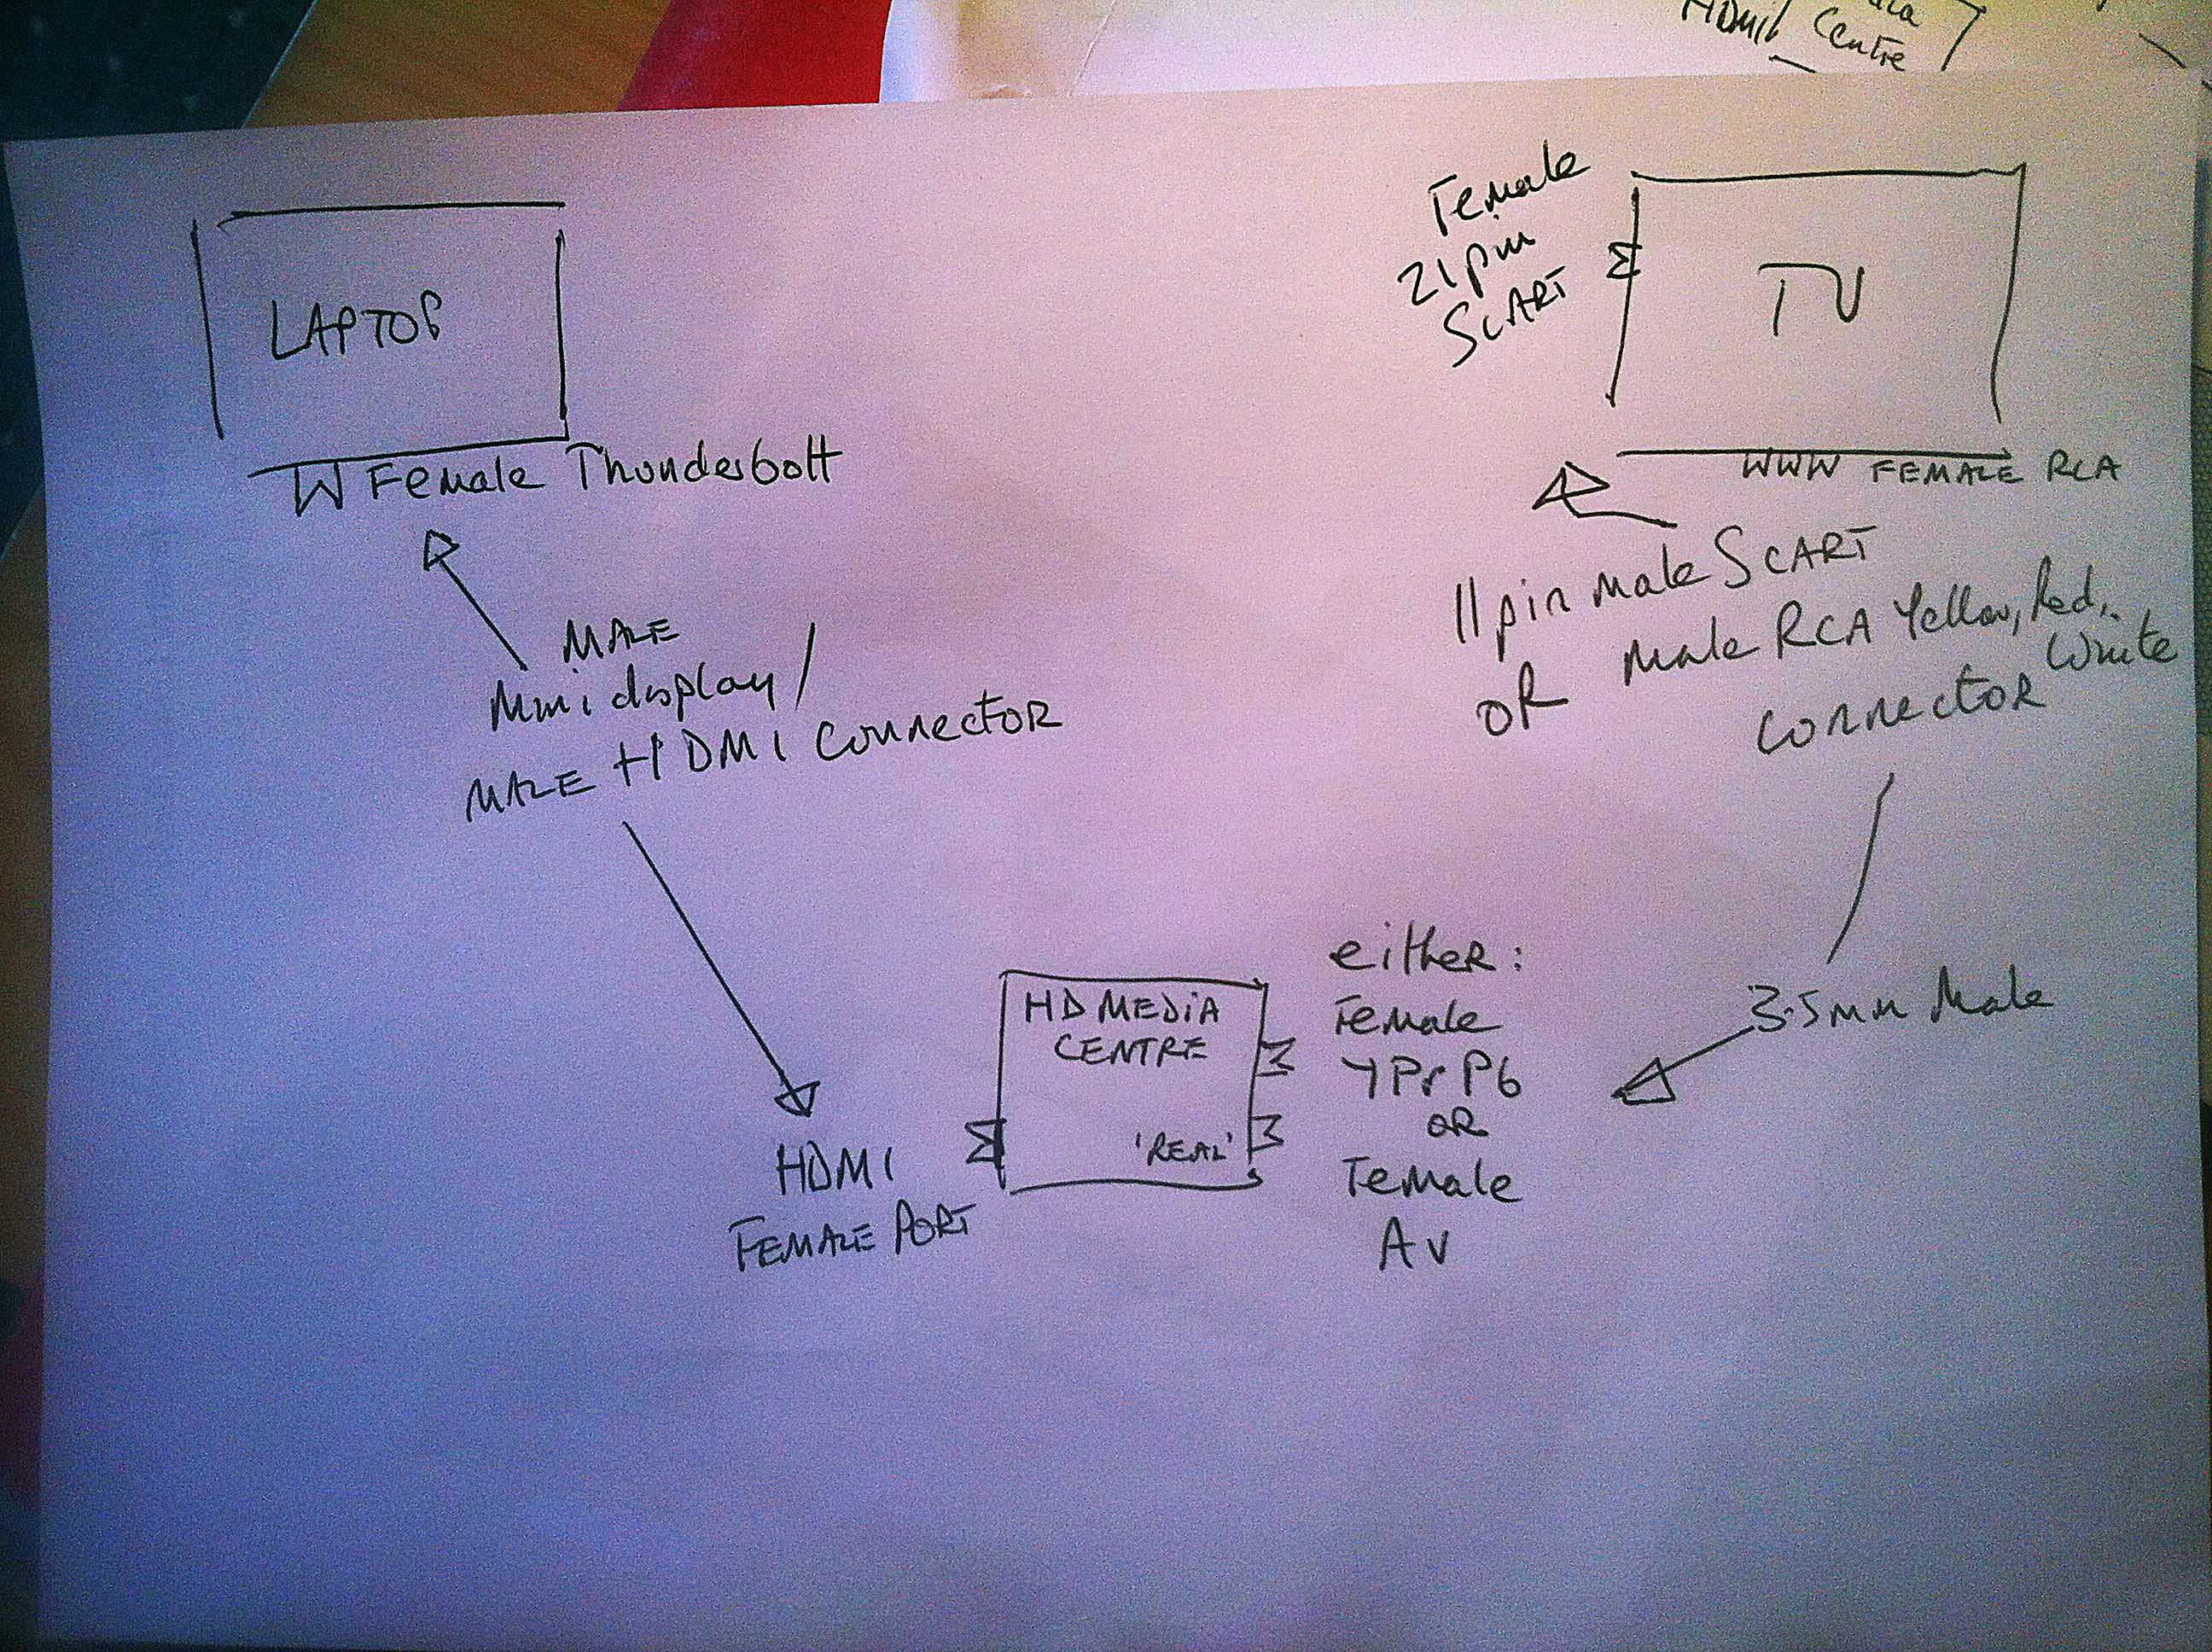 HDMI/ Centre
LAPTOP
W Female Thunderbolt
MALE
Mini display/
MALE HDMI CONNECTOR
HDMI
FEMALE PORT
HD MEDIA
CENTRE
'REAL'
either:
Female
YPrPb
OR
Female
AV
3.5mm Male
Female
21pin
SCART
TV
WWW FEMALE RCA
11pin male SCART
OR male RCA Yellow, Red,
White
connector